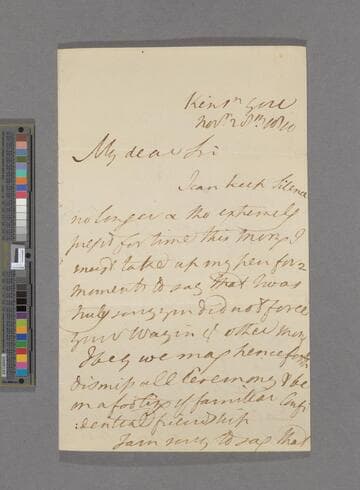 Kensn. Gore
Novr. 28th. 1810
My dear Sir
I can keep Silence
no longer & tho extremely
press'd for time this Morng. I
must take up my pen for 2
moments to say that I was
truly sorry you did not force
your Way in ye. other Morng
I beg we may henceforth
dismiss all Ceremony & be
on a footing of familiar Confi
:dential friendship
I am sorry to say that